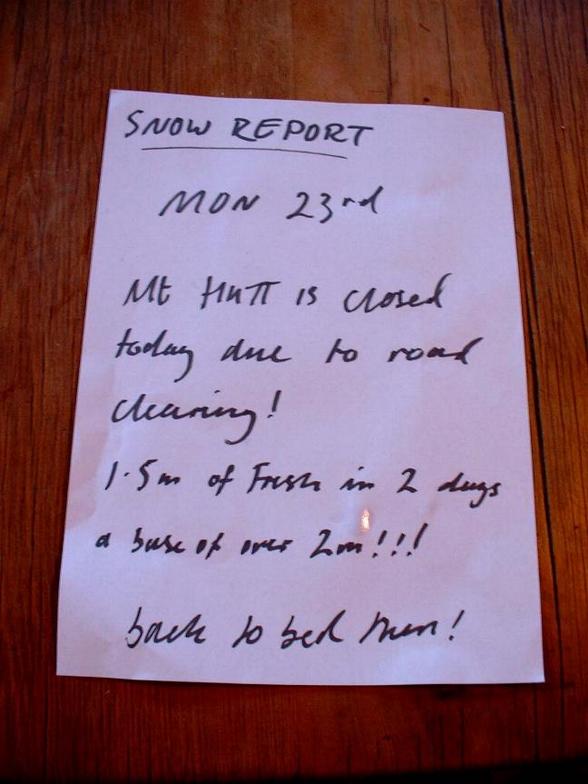 SNOW REPORT
MON 23rd
Mt HUTT is closed
today due to road
clearing!
1.5m of Fresh in 2 days
a base of over 2m!!!
back to bed then!